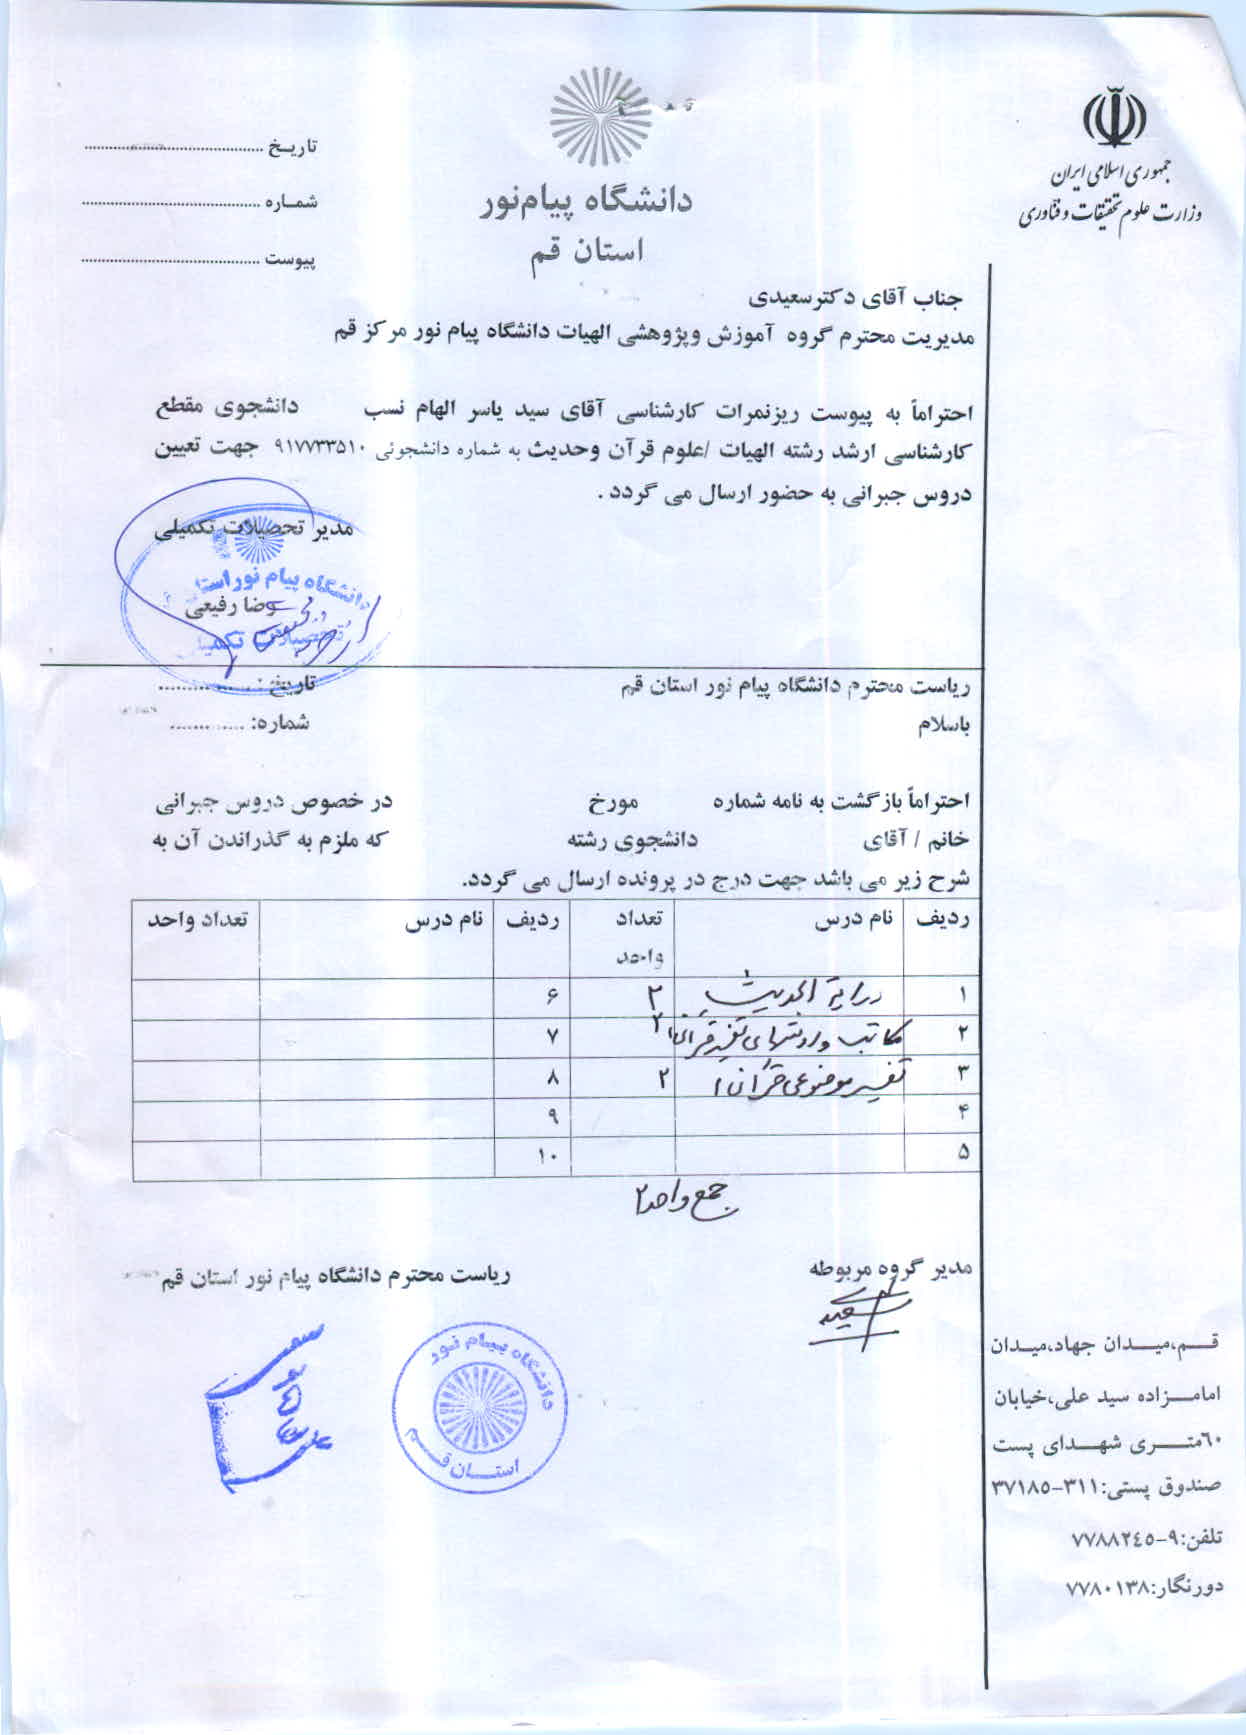 جمهوری اسلامی ایران
وزارت علوم تحقیقات و فناوری
دانشگاه پیام‌نور
استان قم
تاریـخ ............................................
شمـاره ............................................
پیوست ............................................
جناب آقای دکترسعیدی
مدیریت محترم گروه آموزش وپژوهشی الهیات دانشگاه پیام نور مرکز قم
احتراماً به پیوست ریزنمرات کارشناسی آقای سید یاسر الهام نسب دانشجوی مقطع
کارشناسی ارشد رشته الهیات /علوم قرآن وحدیث به شماره دانشجوئی ۹۱۷۷۳۳۵۱۰ جهت تعیین
دروس جبرانی به حضور ارسال می گردد .
مدیر تحصیلات تکمیلی
دانشگاه پیام نور استا
رضا رفیعی
تحصیلات تکمیلی
ریاست محترم دانشگاه پیام نور استان قم
تاریخ : ..............
باسلام
شماره: ............
احتراماً بازگشت به نامه شماره مورخ در خصوص دروس جبرانی
خانم / آقای دانشجوی رشته که ملزم به گذراندن آن به
شرح زیر می باشد جهت درج در پرونده ارسال می گردد.
ردیف نام درس تعداد واحد ردیف نام درس تعداد واحد
۱ درایة الحدیث ۲ ۶
۲ مکاتب و روشهای تفسیر قرآن ۱ ۲ ۷
۳ تفسیر موضوعی قرآن ۱ ۲ ۸
۴ ۹
۵ ۱۰
جمع واحد
مدیر گروه مربوطه
ریاست محترم دانشگاه پیام نور استان قم
دانشگاه پیام نور
استــان قــم
قــم،میــدان جهاد،میـدان
امامــزاده سید علی،خیابان
٦۰متــری شهـدای پست
صندوق پستی:۳۱۱-۳۷۱۸۵
تلفن:۹-۷۷۸۸۲٤۵
دورنگار:۷۷۸۰۱۳۸